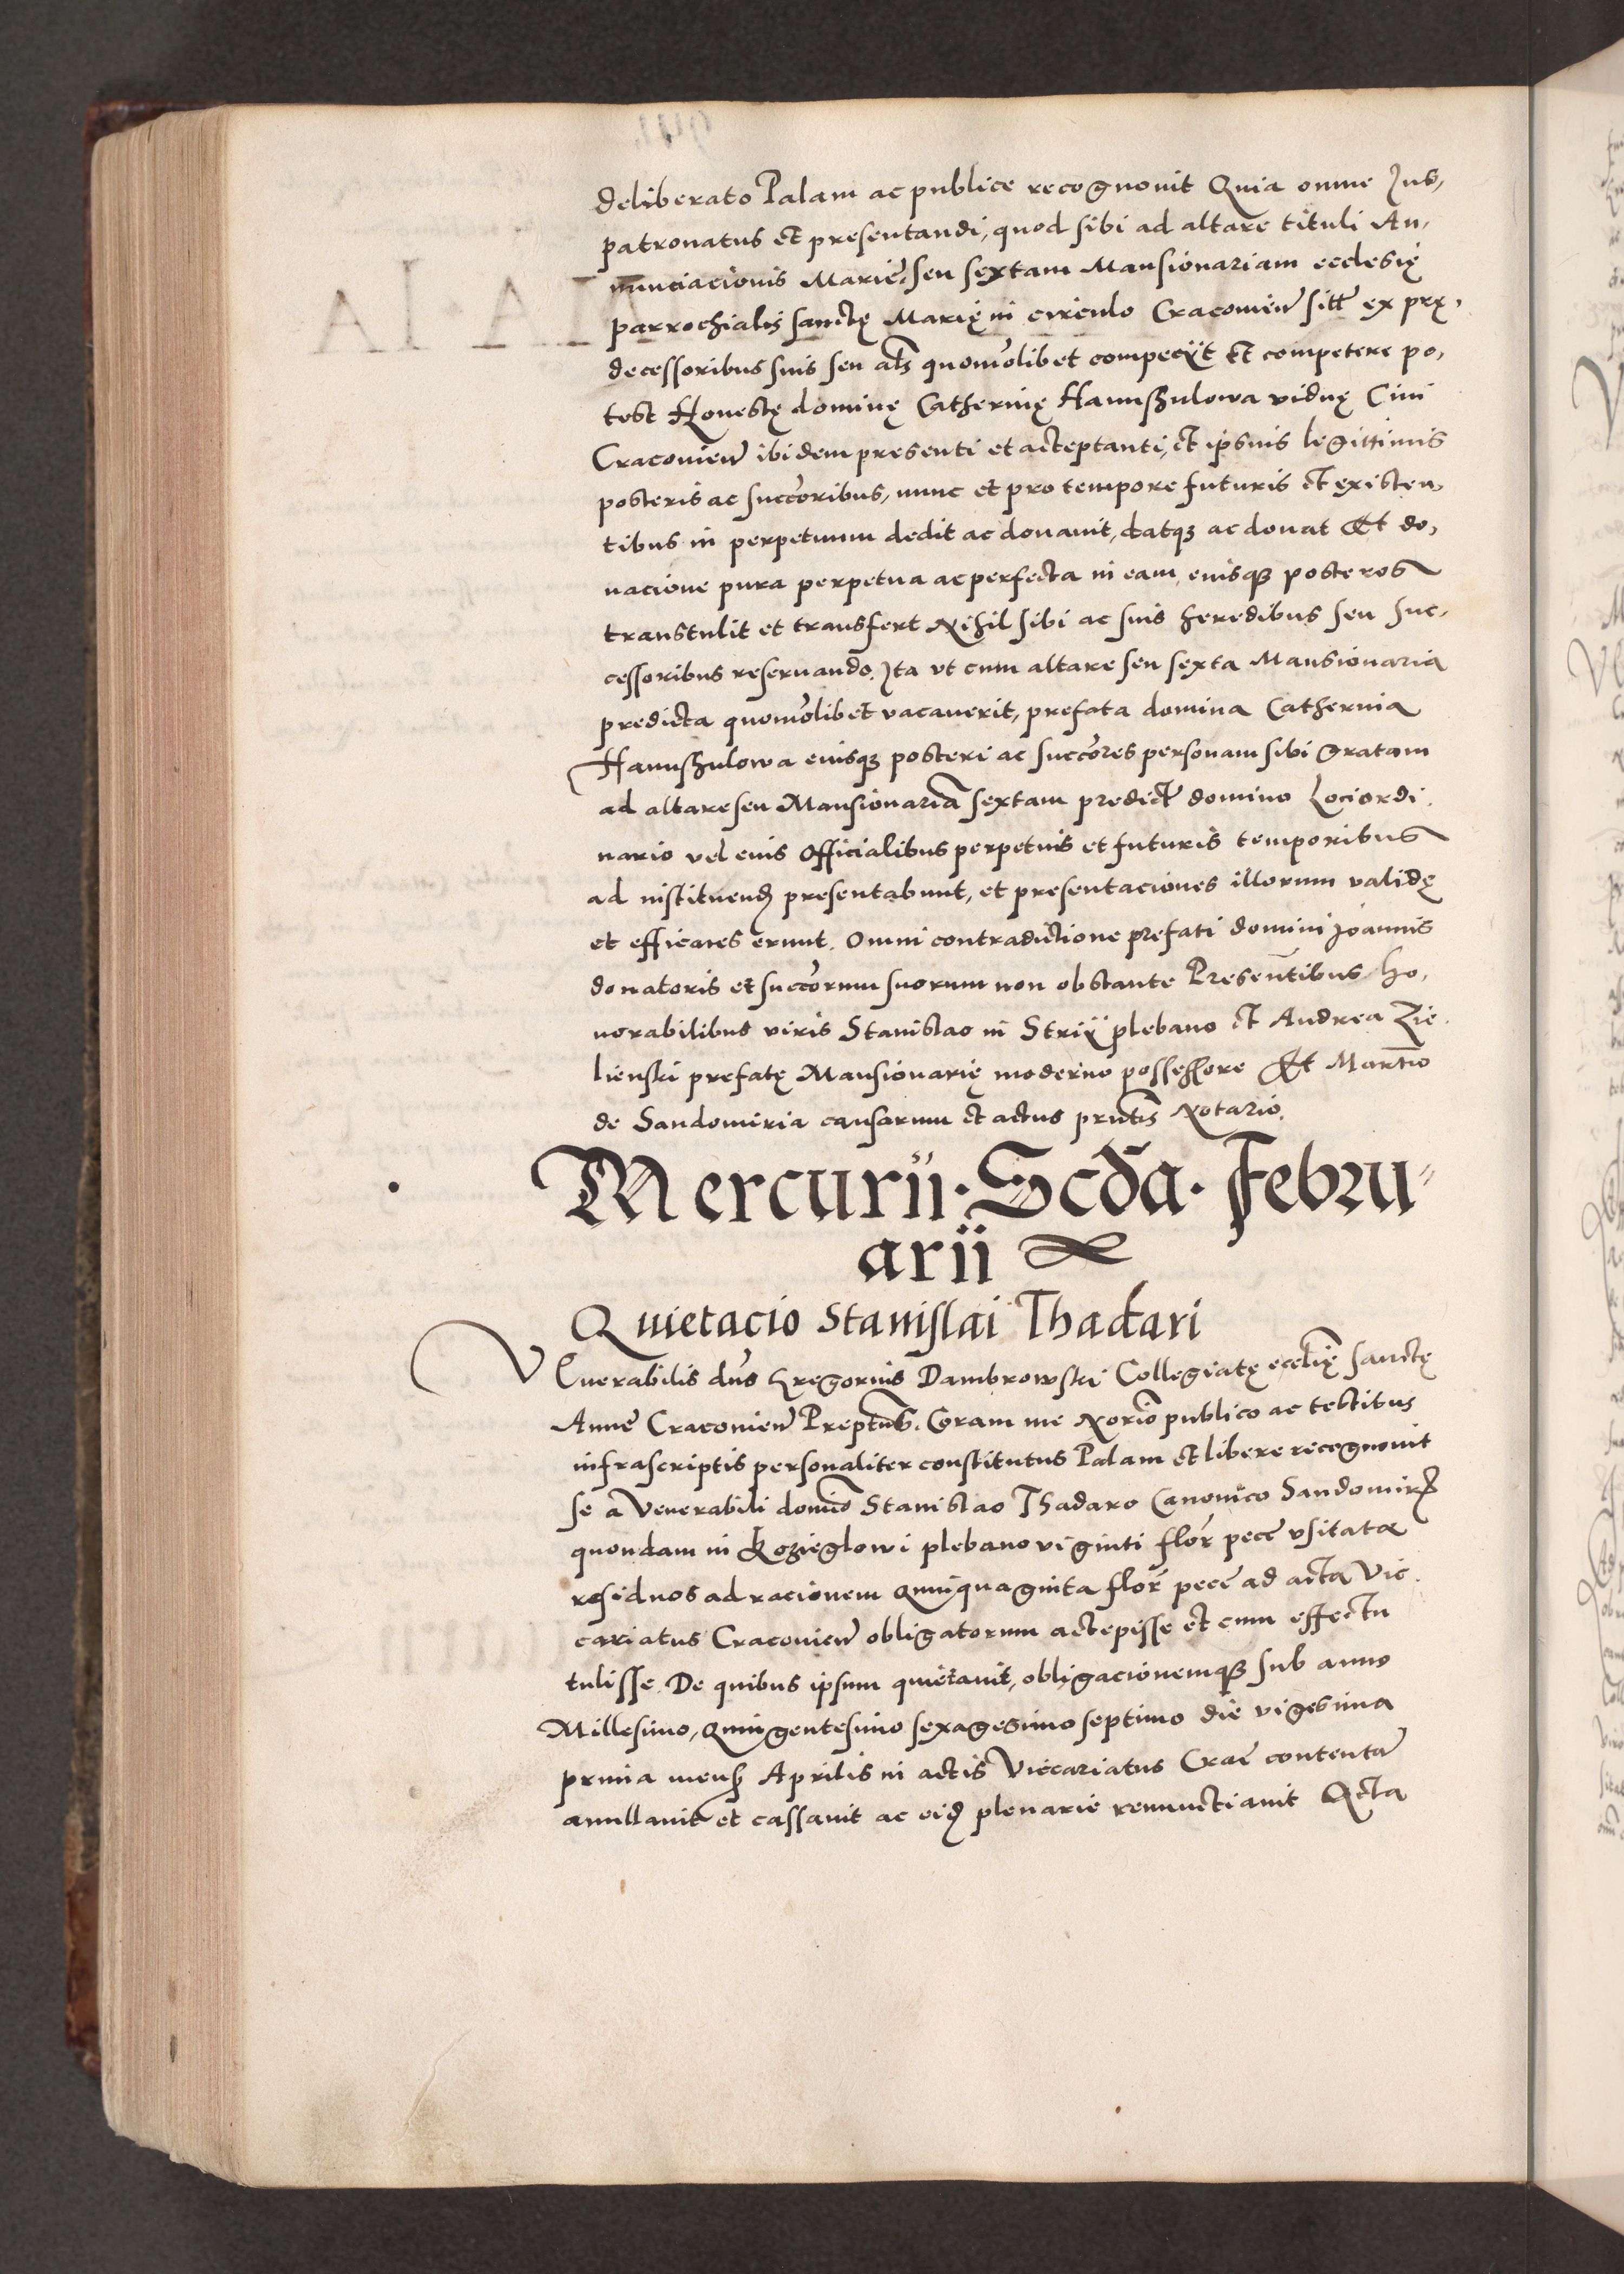 deliberato Palam ac publice recognouit Quia omne Jus,
patronatus et presentandi, quod sibi ad altare tituli An,
nunciacionis Marie, seu sextam Mansionariam ecclesię
parrochialis sanctę Marię in circulo Cracouien sitt ex prę,
decessoribus suis seu als quomolibet competÿt et competere po,
test Honestę dominę Catherinę Hannszulowa viduę Ciui
Cracouien ibidem presenti et acceptanti, et ipsius legittimis
posteris ac succoribus, nunc et pro tempore futuris et existen,
tibus in perpetuum dedit ac donauit, datqꝫ ac donat Et do,
nacione pura perpetua ac perfecta in eam, eiusqꝫ posteros
transtulit et transfert Nihil sibi ac suis heredibus seu suc,
cessoribus reseruando. Ita vt cum altare seu sexta Mansionaria
predicta quomolibet vacauerit, prefata domina Catherina
Hannszulowa eiusqꝫ posteri ac succores personam sibi gratam
ad altare seu Mansionaria sextam predict domino Lociordi,
nario vel eius Officialibus perpetuis et futuris temporibus
ad instituend presentabunt, et presentaciones illorum validę
et efficaces erunt. Omni contradictione prefati domini Joannis
donatoris et succorum suorum non obstante Presentibus Ho,
norabilibus viris Stanislao in Strÿ plebano et Andrea Zie,
lienski prefatę Mansionarię moderno possessore Et Martino
de Sandomiria causarum et actus prntis Notario.
Mercurii · Scda · Febru
arii
Quietacio Stanislai Thadari
VEnerabilis dns Gregorius Dambrowski Collegiatę ecclię sanctę
Annę Cracouien Preptus. Coram me Norio publico ac testibus
infrascriptis personaliter constitutus Palam et libere recognouit
se a Venerabili domino Stanislao Thadaro Canonico Sandomir
quondam in Kozieglowi plebano viginti flor pece vsitatæ
residuos ad racionem quinquaginta flor pece ad acta Vic,
cariatus Cracouien obligatorum accepisse et cum effectu
tulisse. De quibus ipsum quietauit, obligacionemqꝫ sub anno
Millesimo, quingentesimo sexagesimo septimo die vigesima
prima mens Aprilis in actis Viccariatus Crac contenta
anullauit et cassauit ac eid plenarie renunctiauit Acta